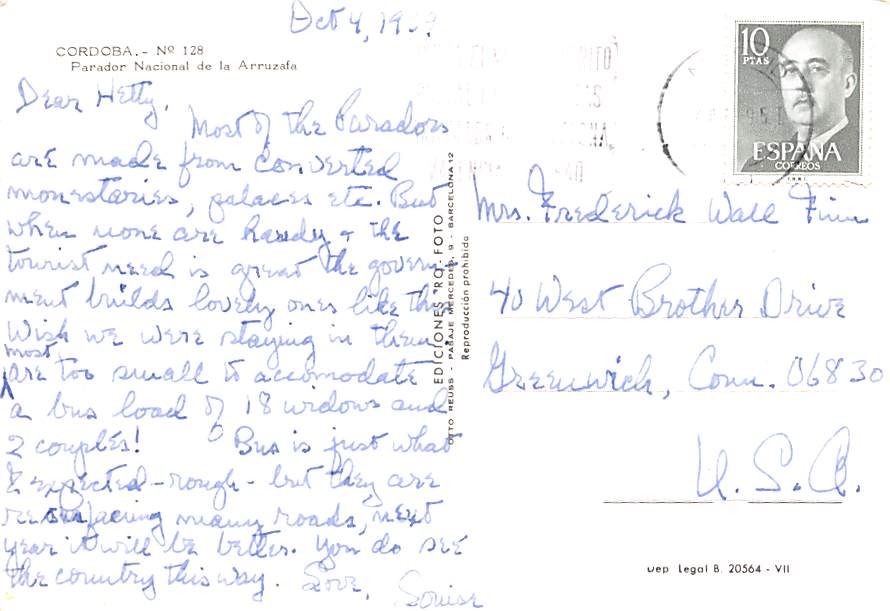 Oct 4, 19
CORDOBA. - Nº 128
Parador Nacional de la Arruzafa
Dear Hetty,
Most of the Paradors
are made from converted
monestaries, palaces etc. But
when none are handy + the
tourist need is great the govern-
ment builds lovely ones like this
Wish we were staying in them
most
are too small to accomodate
a bus load of 18 widows and
2 couples! Bus is just what
I expected - rough - but they are
resurfacing many roads, next
year it will be better. You do see
the country this way. Love,
Louise
EDICIONES "RO-FOTO
OTTO REUSS - PASAJE MERCEDES, 9 - BARCELONA 12
Reproducción prohibida
10
PTAS
ESPAÑA
CORREOS
Mrs. Frederick Wall Finn
40 West Brother Drive
Greenwich, Conn. 06830
U.S.A.
Dep. Legal B. 20564 - VII